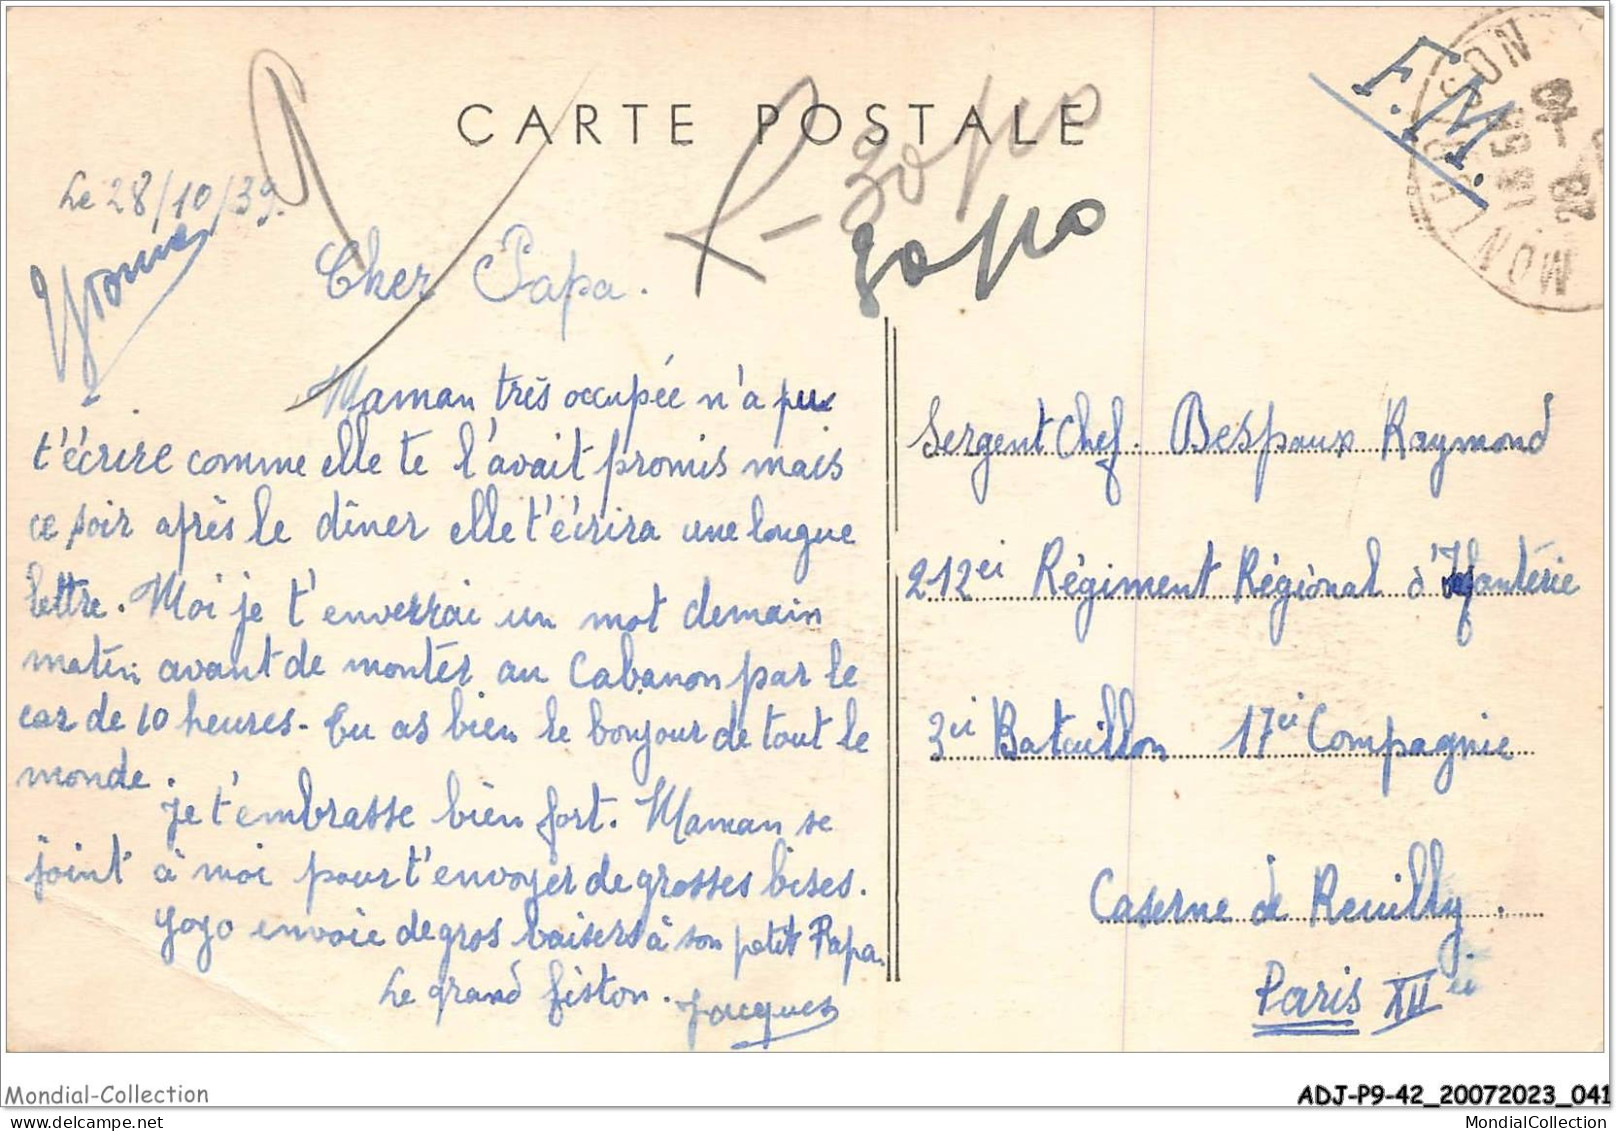 CARTE POSTALE
F.M.
MONTBRISON
Le 28/10/39.
Yvonne
Cher Papa.
Maman très occupée n'a pu
t'écrire comme elle te l'avait promis mais
ce soir après le dîner elle t'écrira une longue
lettre. Moi je t'enverrai un mot demain
matin avant de monter au Cabanon par le
car de 10 heures - Tu as bien le bonjour de tout le
monde.
Je t'embrasse bien fort. Maman se
joint à moi pour t'envoyer de grosses bises.
Yoyo envoie de gros baisers à son petit Papa.
Le grand fiston. Jacques
Sergent Chef. Bespaux Raymond
212ei Régiment Régional d'Infantérie
3ei Bataillon 17ei Compagnie
Caserne de Reuilly.
Paris XIIei
Mondial-Collection
ADJ-P9-42_20072023_041
MondialCollection